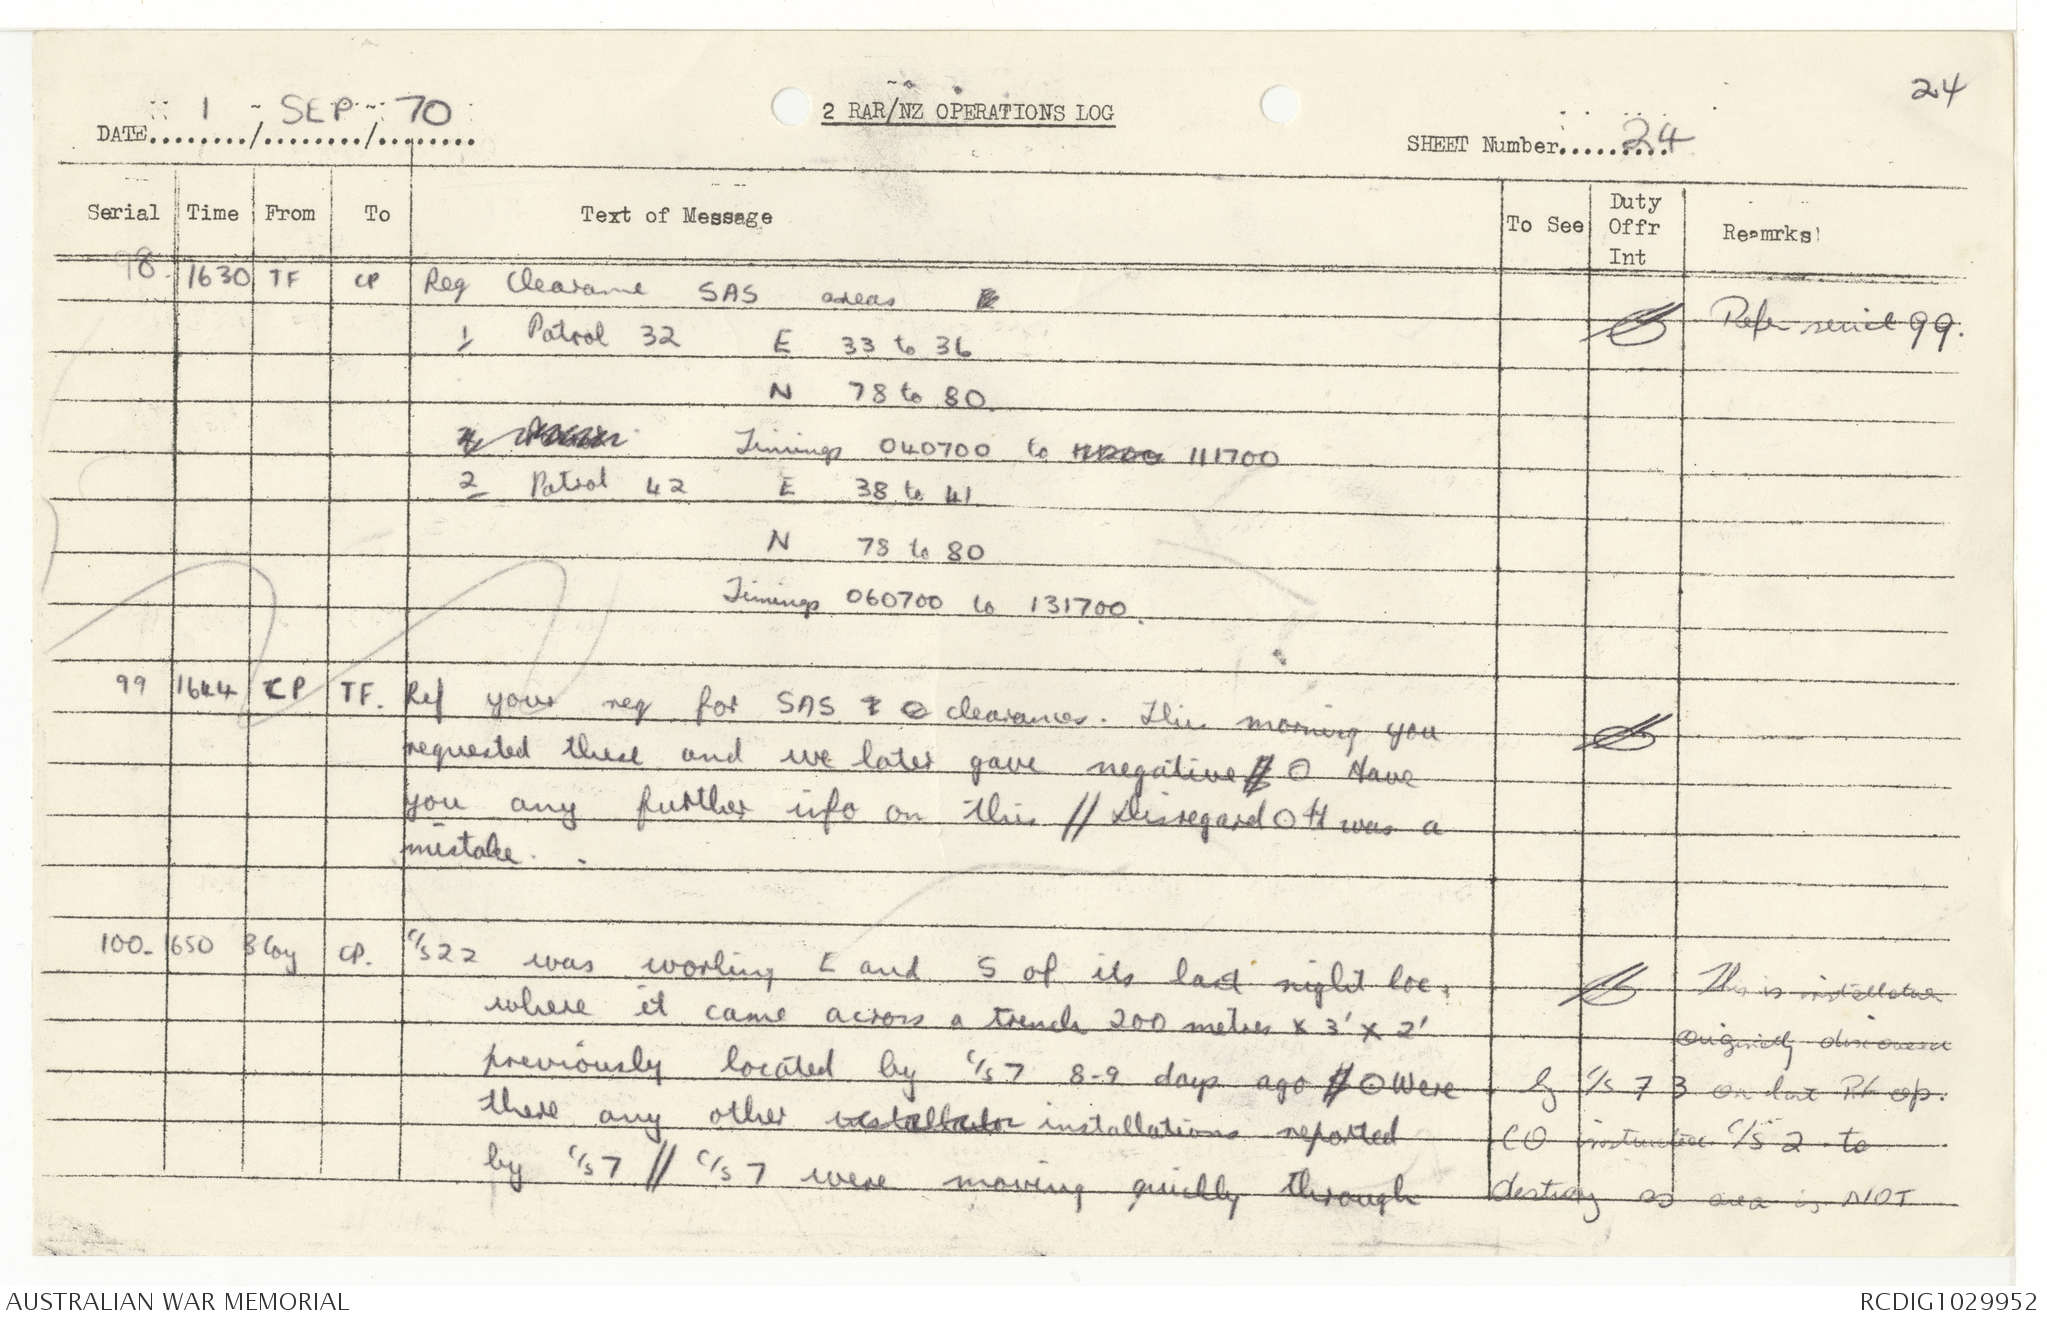 24
DATE 1 / SEP / 70
2 RAR/NZ OPERATIONS LOG
SHEET Number 24
Serial Time From To Text of Message To See Duty Offr Int Reamrks
98. 1630 TF CP Req Clearance SAS areas
Refer serial 99.
1 Patrol 32 E 33 to 36
N 78 to 80
Timings 040700 to 111700
2 Patrol 42 E 38 to 41
N 78 to 80
Timings 060700 to 131700.
99 1644 CP TF. Ref your req for SAS clearances. This morning you
requested these and we later gave negative // O Have
you any further info on this // Disregard O It was a
mistake.
100. 1650 B Coy CP. C/S 22 was working E and S of its last night loc,
where it came across a trench 200 metres x 3' x 2'
previously located by C/S 7 8-9 days ago // O Were
there any other installations reported
by C/S 7 // C/S 7 were moving quickly through
This is installation
originally discovered
by C/S 7 3 on last Rh op.
CO instructed C/S 2 to
destroy as area is NOT
AUSTRALIAN WAR MEMORIAL
RCDIG1029952